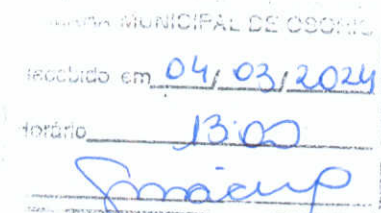 MUNICIPAL DE OSORIO
Recebido em 04/03/2024
Horário 13:00